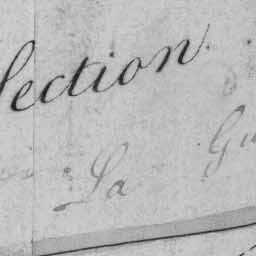 Section.
La Gu